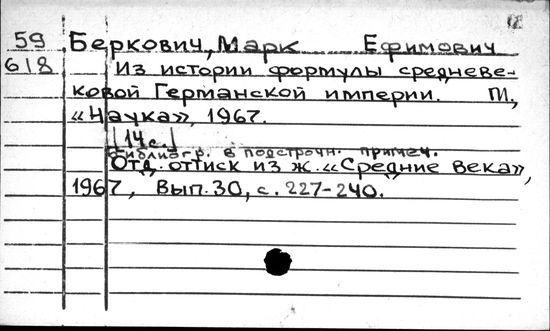 59 Беркович, Марк Ефимович
618 Из истории формулы средневе-
ковой Германской империи. М.,
«Наука», 1967.
|14 с.|
Библиогр. в подстрочн. примеч.
Отд. оттиск из ж. «Средние века»,
1967, вып. 30, с. 227-240.